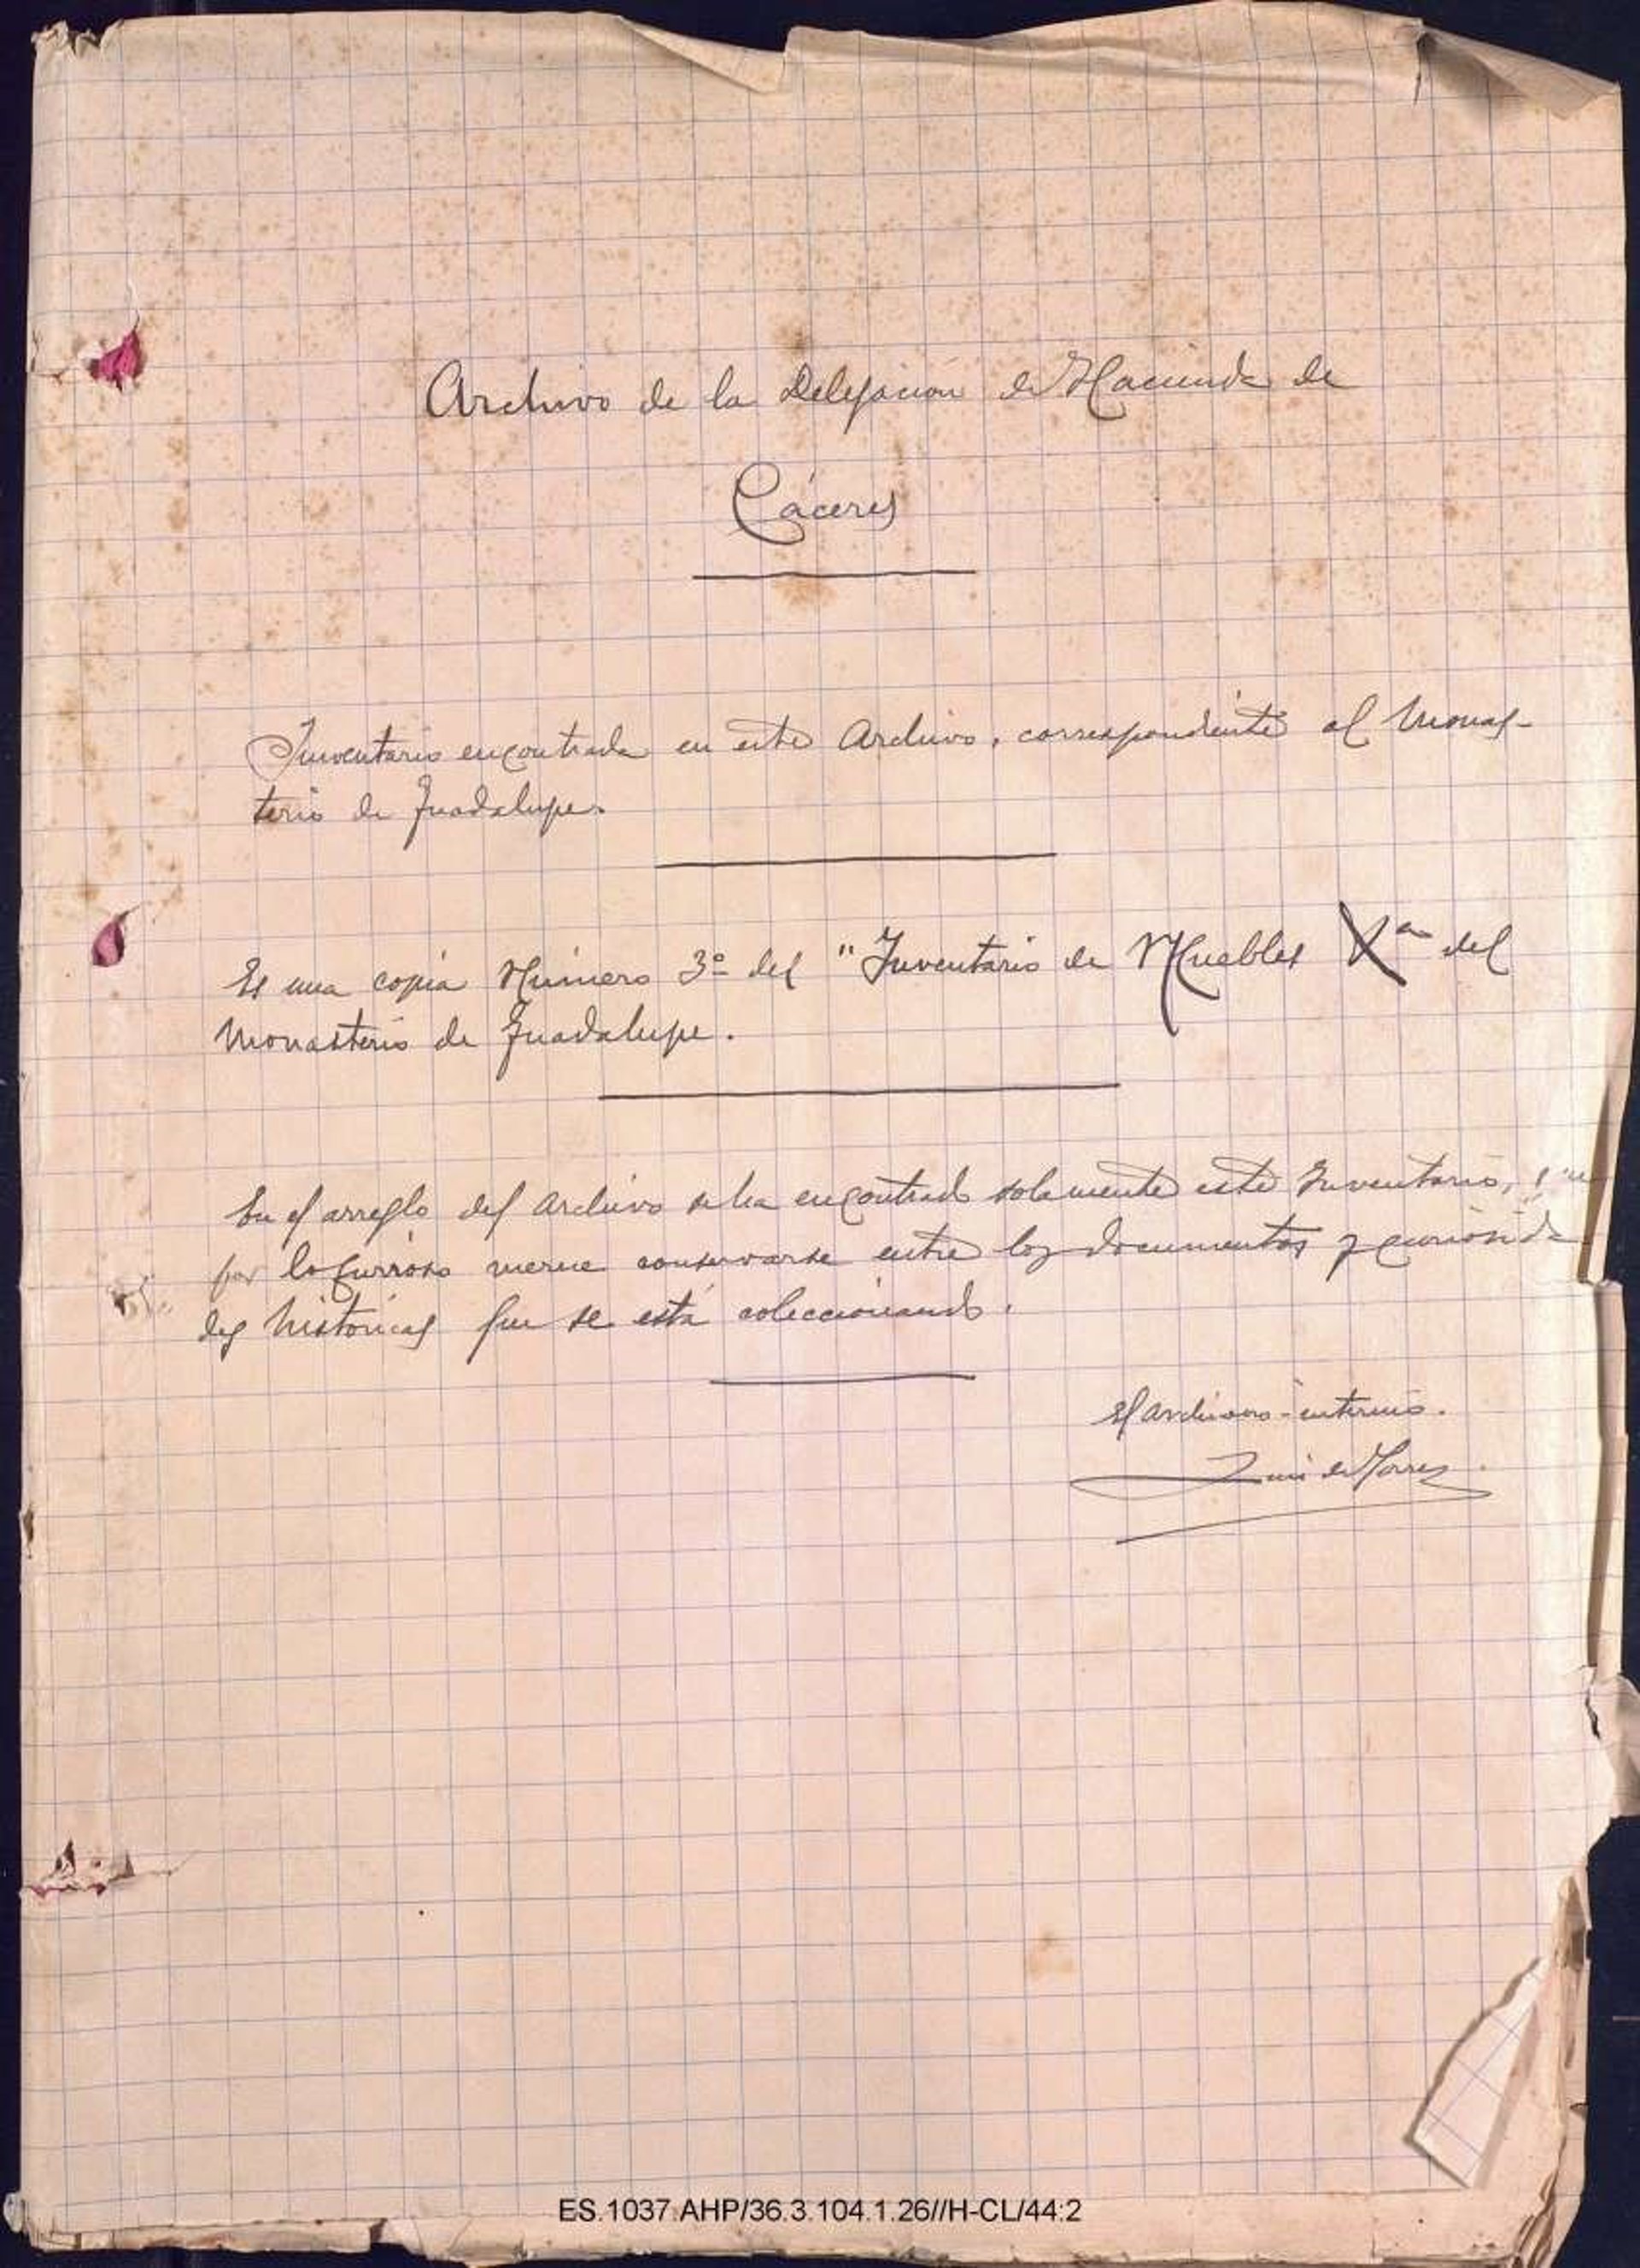 Archivo de la Delegación de Hacienda de
Cáceres
Inventario encontrado en este Archivo, correspondiente al Monas-
terio de Guadalupe.
Es una copia Número 3º del "Inventario de Muebles Xª del
Monasterio de Guadalupe.
En el arreglo del archivo se ha encontrado solamente este Inventario, que
por lo curioso merece conservarse entre los documentos y curiosida
des históricas que se está coleccionando.
El archivero-interino.
Luis de Torres
ES.1037.AHP/36.3.104.1.26//H-CL/44:2